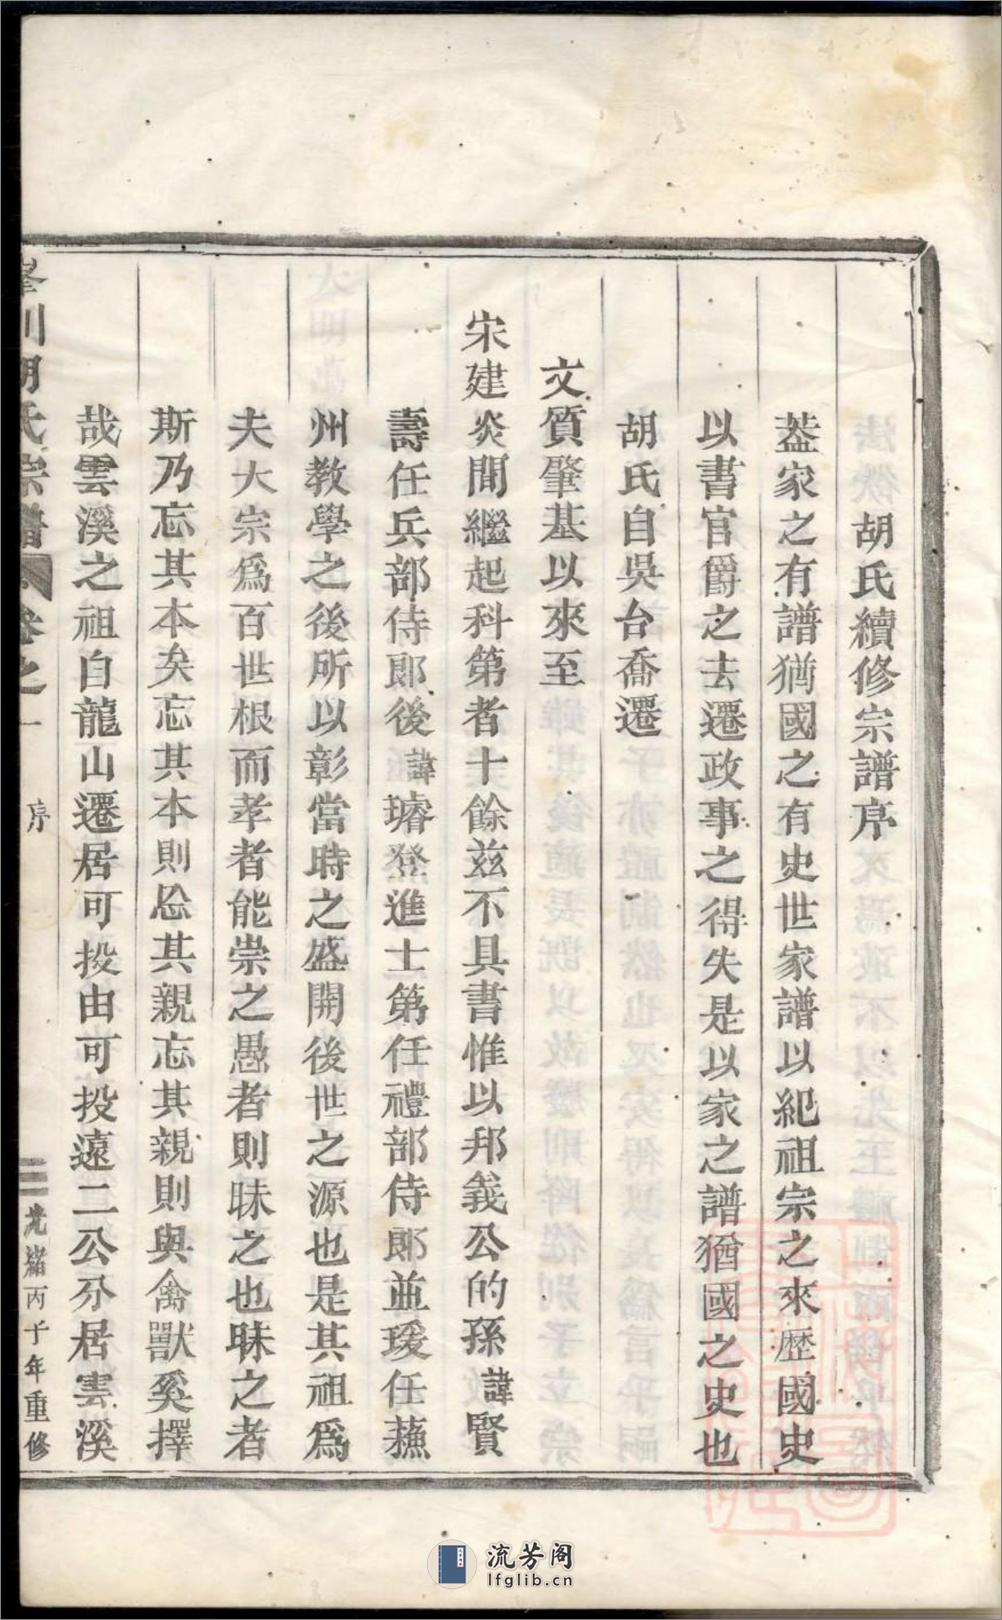 胡氏續修宗譜序
葢家之有譜猶國之有史世家譜以紀祖宗之來歷國史
以書官爵之去遷政事之得失是以家之譜猶國之史也
胡氏自吳台喬遷
文質肇基以來至
宋建炎間繼起科第者十餘兹不具書惟以邦義公的孫諱賢
壽任兵部侍郎後諱璿登進士第任禮部侍郎並瑗任蘓
州教學之後所以彰當時之盛開後世之源也是其祖爲
夫大宗爲百世根而孝者能崇之愚者則昧之也昧之者
斯乃忘其本矣忘其本則忘其親忘其親則與禽獸奚擇
哉雲溪之祖自龍山遷居可投由可投遠二公分居雲溪
川胡氏宗譜 卷之一 序 光緒丙子年重修
流芳阁
lfglib.cn